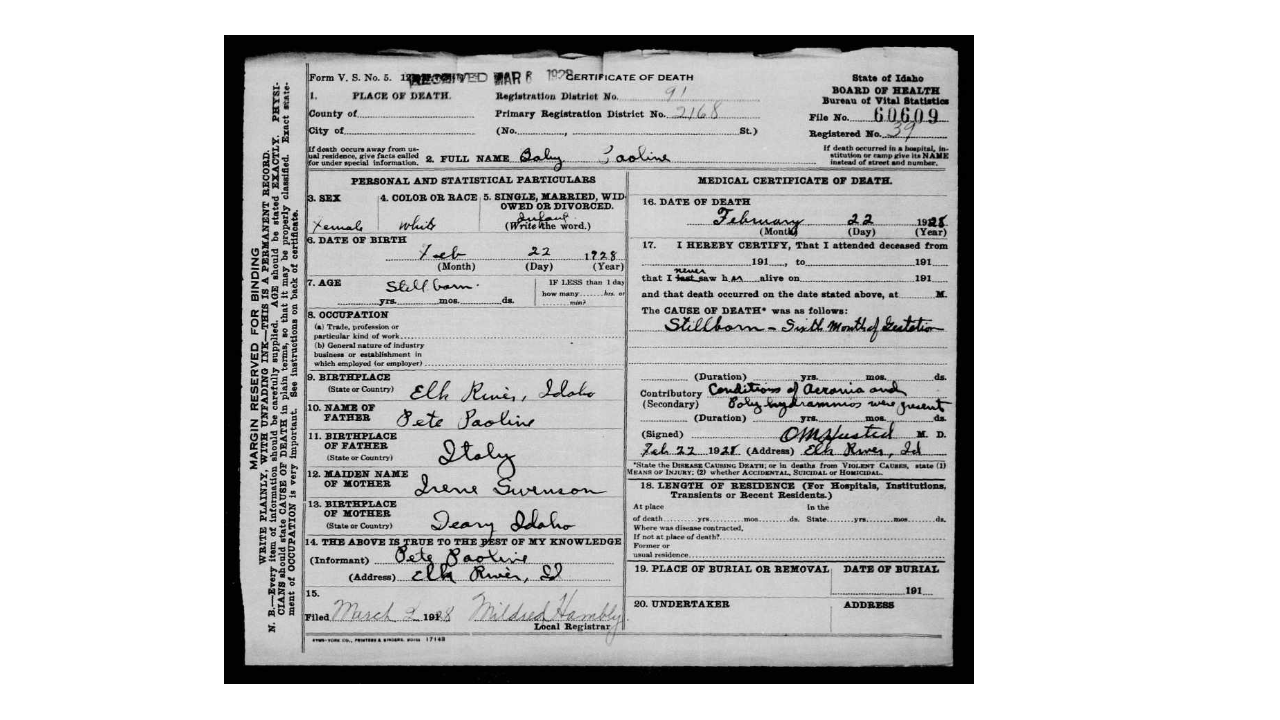 MARGIN RESERVED FOR BINDING
WRITE PLAINLY, WITH UNFADING INK—THIS IS A PERMANENT RECORD.
N. B.—Every item of information should be carefully supplied. AGE should be stated EXACTLY. PHYSI-
CIANS should state CAUSE OF DEATH in plain terms, so that it may be properly classified. Exact state-
ment of OCCUPATION is very important. See instructions on back of certificate.
Form V. S. No. 5. RECEIVED MAR 8 1928 CERTIFICATE OF DEATH
State of Idaho
BOARD OF HEALTH
Bureau of Vital Statistics
File No. 60609
Registered No. 39
1. PLACE OF DEATH.
Registration District No. 91
County of
Primary Registration District No. 2168
City of
(No. , St.)
If death occurs away from us-
ual residence, give facts called
for under special information.
2. FULL NAME Baby Paoline
If death occurred in a hospital, in-
stitution or camp give its NAME
instead of street and number.
PERSONAL AND STATISTICAL PARTICULARS
3. SEX
Female
4. COLOR OR RACE
White
5. SINGLE, MARRIED, WID-
OWED OR DIVORCED.
Infant
(Write the word.)
6. DATE OF BIRTH
Feb 22 1928
(Month) (Day) (Year)
7. AGE Stillborn.
yrs. mos. ds.
IF LESS than 1 day
how many hrs. or
min?
8. OCCUPATION
(a) Trade, profession or
particular kind of work
(b) General nature of industry
business or establishment in
which employed (or employer)
9. BIRTHPLACE
(State or Country) Elk River, Idaho
10. NAME OF
FATHER Pete Paoline
11. BIRTHPLACE
OF FATHER
(State or Country) Italy
12. MAIDEN NAME
OF MOTHER Irene Swenson
13. BIRTHPLACE
OF MOTHER
(State or Country) Deary Idaho
14. THE ABOVE IS TRUE TO THE BEST OF MY KNOWLEDGE
(Informant) Pete Paoline
(Address) Elk River, Id
15.
Filed March 2 1928 Mildred Hambly
Local Registrar
17143
MEDICAL CERTIFICATE OF DEATH.
16. DATE OF DEATH
February 22 1928
(Month) (Day) (Year)
17. I HEREBY CERTIFY, That I attended deceased from
191 , to 191
never
that I last saw h er alive on 191
and that death occurred on the date stated above, at M.
The CAUSE OF DEATH* was as follows:
Stillborn - Sixth Month of Gestation
(Duration) yrs. mos. ds.
Contributory Conditions of Acrania and
(Secondary) Poly hydramnios were present
(Duration) yrs. mos. ds.
(Signed) M. D.
Feb 22 1928 (Address) Elk River, Id
*State the DISEASE CAUSING DEATH; or in deaths from VIOLENT CAUSES, state (1)
MEANS OF INJURY; (2) whether ACCIDENTAL, SUICIDAL or HOMICIDAL.
18. LENGTH OF RESIDENCE (For Hospitals, Institutions,
Transients or Recent Residents.)
At place In the
of death yrs. mos. ds. State yrs. mos. ds.
Where was disease contracted,
If not at place of death?
Former or
usual residence
19. PLACE OF BURIAL OR REMOVAL
DATE OF BURIAL
191
20. UNDERTAKER
ADDRESS